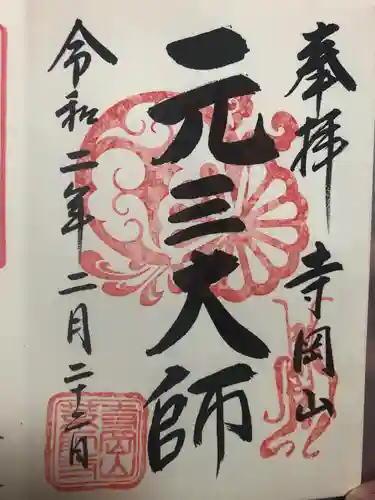 奉拝 寺岡山
元三大師
令和二年二月二十二日